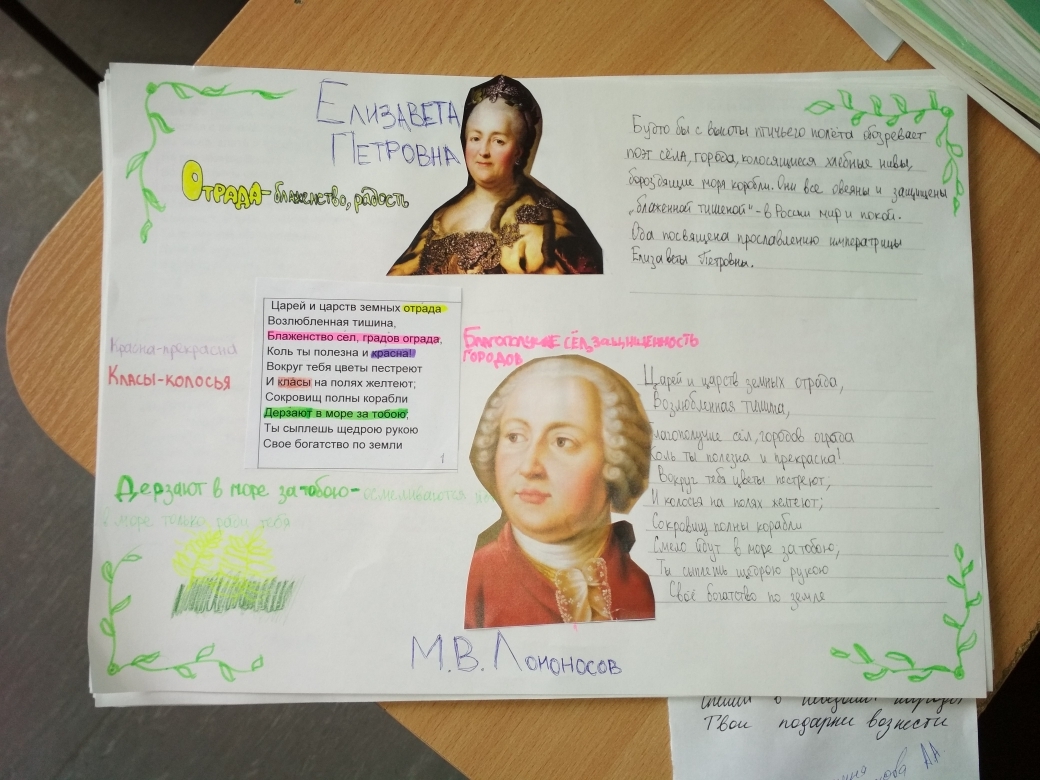 ЕЛИЗАВЕТА
ПЕТРОВНА
ОТРАДА-блаженство, радость
Будто бы с высоты птичьего полёта обозревает
поэт сёла, города, колосящиеся хлебные нивы,
бороздящие моря корабли. Они все овеяны и защищены
„блаженной тишеной"- в России мир и покой.
Ода посвящена прославлению императрицы
Елизаветы Петровны.
Царей и царств земных отрада
Возлюбленная тишина,
Блаженство сел, градов ограда,
Коль ты полезна и красна!
Вокруг тебя цветы пестреют
И класы на полях желтеют;
Сокровищ полны корабли
Дерзают в море за тобою;
Ты сыплешь щедрою рукою
Свое богатство по земли
1
Красна-прекрасна
Класы-колосья
Благополучие сёл, защищённость
городов
Дерзают в море за тобою-осмеливаются
в море только ради тебя
Царей и царств земных отрада,
Возлюбленная тишина,
Благополучие сёл, городов ограда
Коль ты полезна и прекрасна!
Вокруг тебя цветы пестреют;
И колосья на полях желтеют;
Сокровищ полны корабли
Смело идут в море за тобою,
Ты сыплешь щедрою рукою
Своё богатство по земле
М.В. Ломоносов
Твои подарки вознести